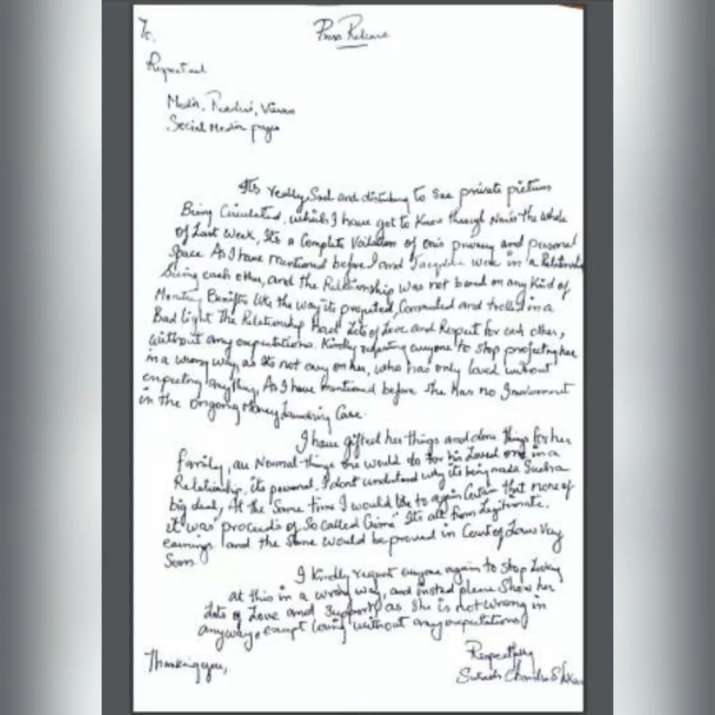 Press Release
To,
Respected
Media, Readers, Viewers
Social Media pages
Its really Sad and disturbing to see private pictures
Being Circulated, which I have got to Know through News the whole
of Last Week, Its a Complete Voilation of one's privacy and personal
Space As I have mentioned before I and Jacqueline were in a Relationship
Seeing each other, and the Relationship was not based on any Kind of
Monetary Benifits like the way its projected, Commented and trolled in a
Bad light The Relationship Lots of Love and Respect for each other,
without any expectations. Kindly requesting everyone to stop projecting her
in a wrong way, as its not easy on her, who has only loved without
expecting anything, As I have mentioned before She has no Involvement
in the ongoing Money Laundering Case.
I have gifted her things and done things for her
family, are Normal things one would do for his Loved one in a
Relationship, its personal, I dont understand why its being made Such a
big deal, At the Same time I would like to again that none of
it was "proceeds of So called Crime" Its all from Legitimate
earnings and the same would be proved in Court of Laws Very
Soon.
I Kindly request everyone again to Stop
at this in a wrong way, and insted please Show her
Lots of Love and Support as She is not wrong in
anyway, except loving without any expectations
Thanking you,
Respectfully
Chandra